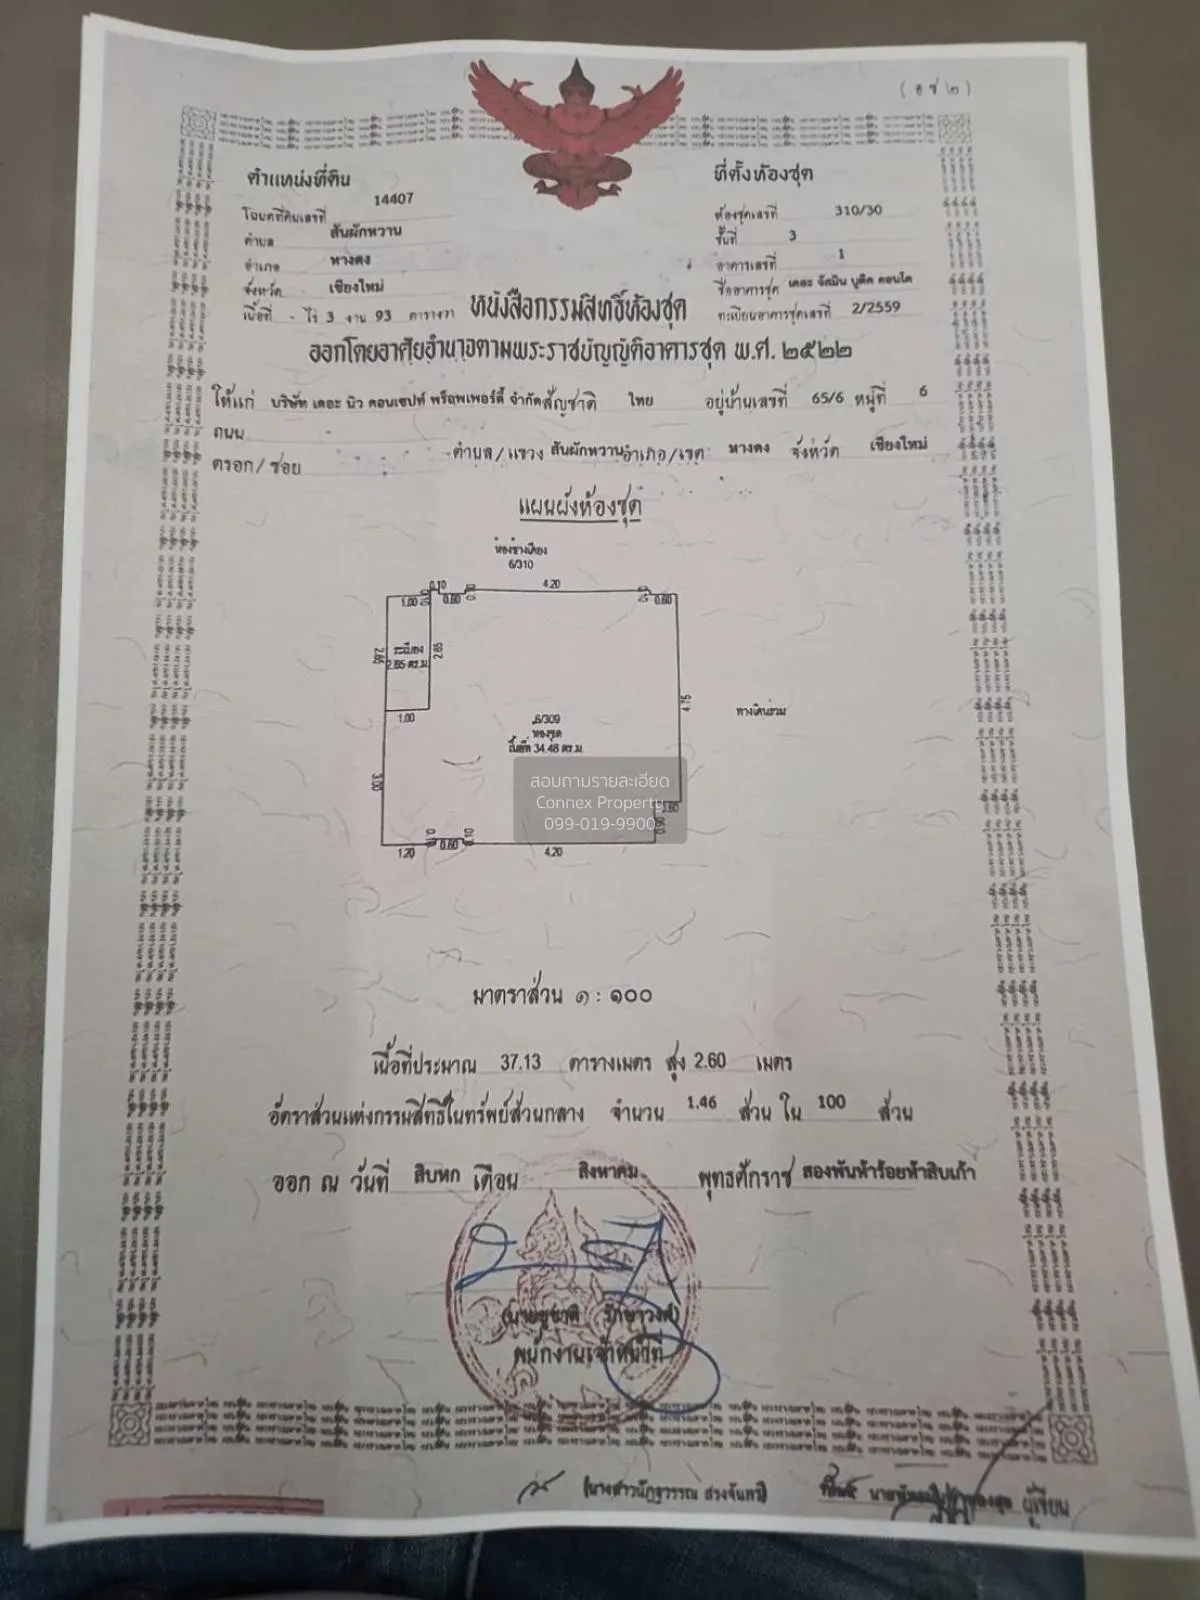 (อ ช ๒)
ตำแหน่งที่ดิน
โฉนดที่ดินเลขที่ 14407
ตำบล สันผักหวาน
อำเภอ หางดง
จังหวัด เชียงใหม่
เนื้อที่ - ไร่ 3 งาน 93 ตารางวา
ที่ตั้งห้องชุด
ห้องชุดเลขที่ 310/30
ชั้นที่ 3
อาคารเลขที่ 1
ชื่ออาคารชุด เดอะ จัสมิน บูติค คอนโด
ทะเบียนอาคารชุดเลขที่ 2/2559
หนังสือกรรมสิทธิ์ห้องชุด
ออกโดยอาศัยอำนาจตามพระราชบัญญัติอาคารชุด พ.ศ. ๒๕๒๒
ให้แก่ บริษัท เดอะ นิว คอนเซปท์ พร็อพเพอร์ตี้ จำกัด สัญชาติ ไทย อยู่บ้านเลขที่ 65/6 หมู่ที่ 6
ถนน
ตรอก/ซอย - ตำบล/แขวง สันผักหวาน อำเภอ/เขต หางดง จังหวัด เชียงใหม่
แผนผังห้องชุด
ห้องข้างเคียง
6/310
0.10
4.20
1.00
0.60
0.60
2.65
ระเบียง
2.65 ตร.ม.
2.65
1.00
4.75
ทางเดินรวม
6/309
ห้องชุด
เนื้อที่ 34.48 ตร.ม.
3.00
สอบถามรายละเอียด
Connex Property
099-019-9900
0.90
1.20
0.60
0.10
4.20
มาตราส่วน ๑ : ๑๐๐
เนื้อที่ประมาณ 37.13 ตารางเมตร สูง 2.60 เมตร
อัตราส่วนแห่งกรรมสิทธิ์ในทรัพย์ส่วนกลาง จำนวน 1.46 ส่วน ใน 100 ส่วน
ออก ณ วันที่ สิบหก เดือน สิงหาคม พุทธศักราช สองพันห้าร้อยห้าสิบเก้า
(นายชูชาติ รักษาวงศ์)
พนักงานเจ้าหน้าที่
ผู้เขียน